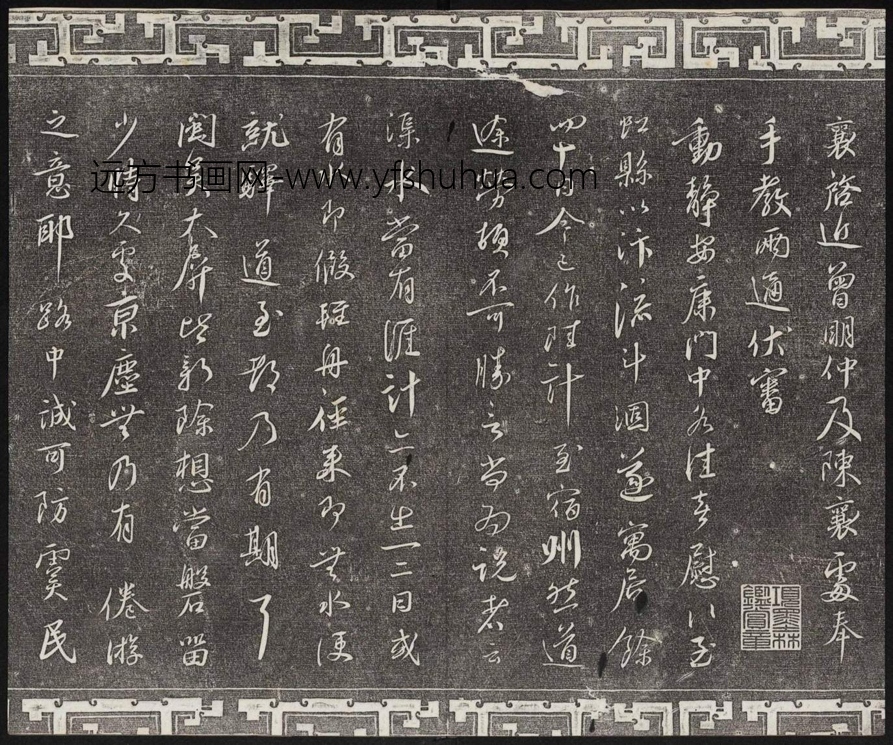 襄啓近曾明仲及陳襄處奉
手教兩通伏審
動靜安康門中各佳喜慰喜慰至
虹縣以汴流斗涸遂寓居餘
四十日今已作陸計至宿州然道
途勞頓不可勝言尚為説者云
渠水當有涯計亦不出一二日或
有水即假輕舟徑來即無水便
就驛道至都乃有期耳
閩吳大屏皆新除想當磐留
少時久處京塵無乃有倦游
之意耶路中誠可防霣民
遠方书画网-www.yfshuhua.com
項墨林鑑賞章